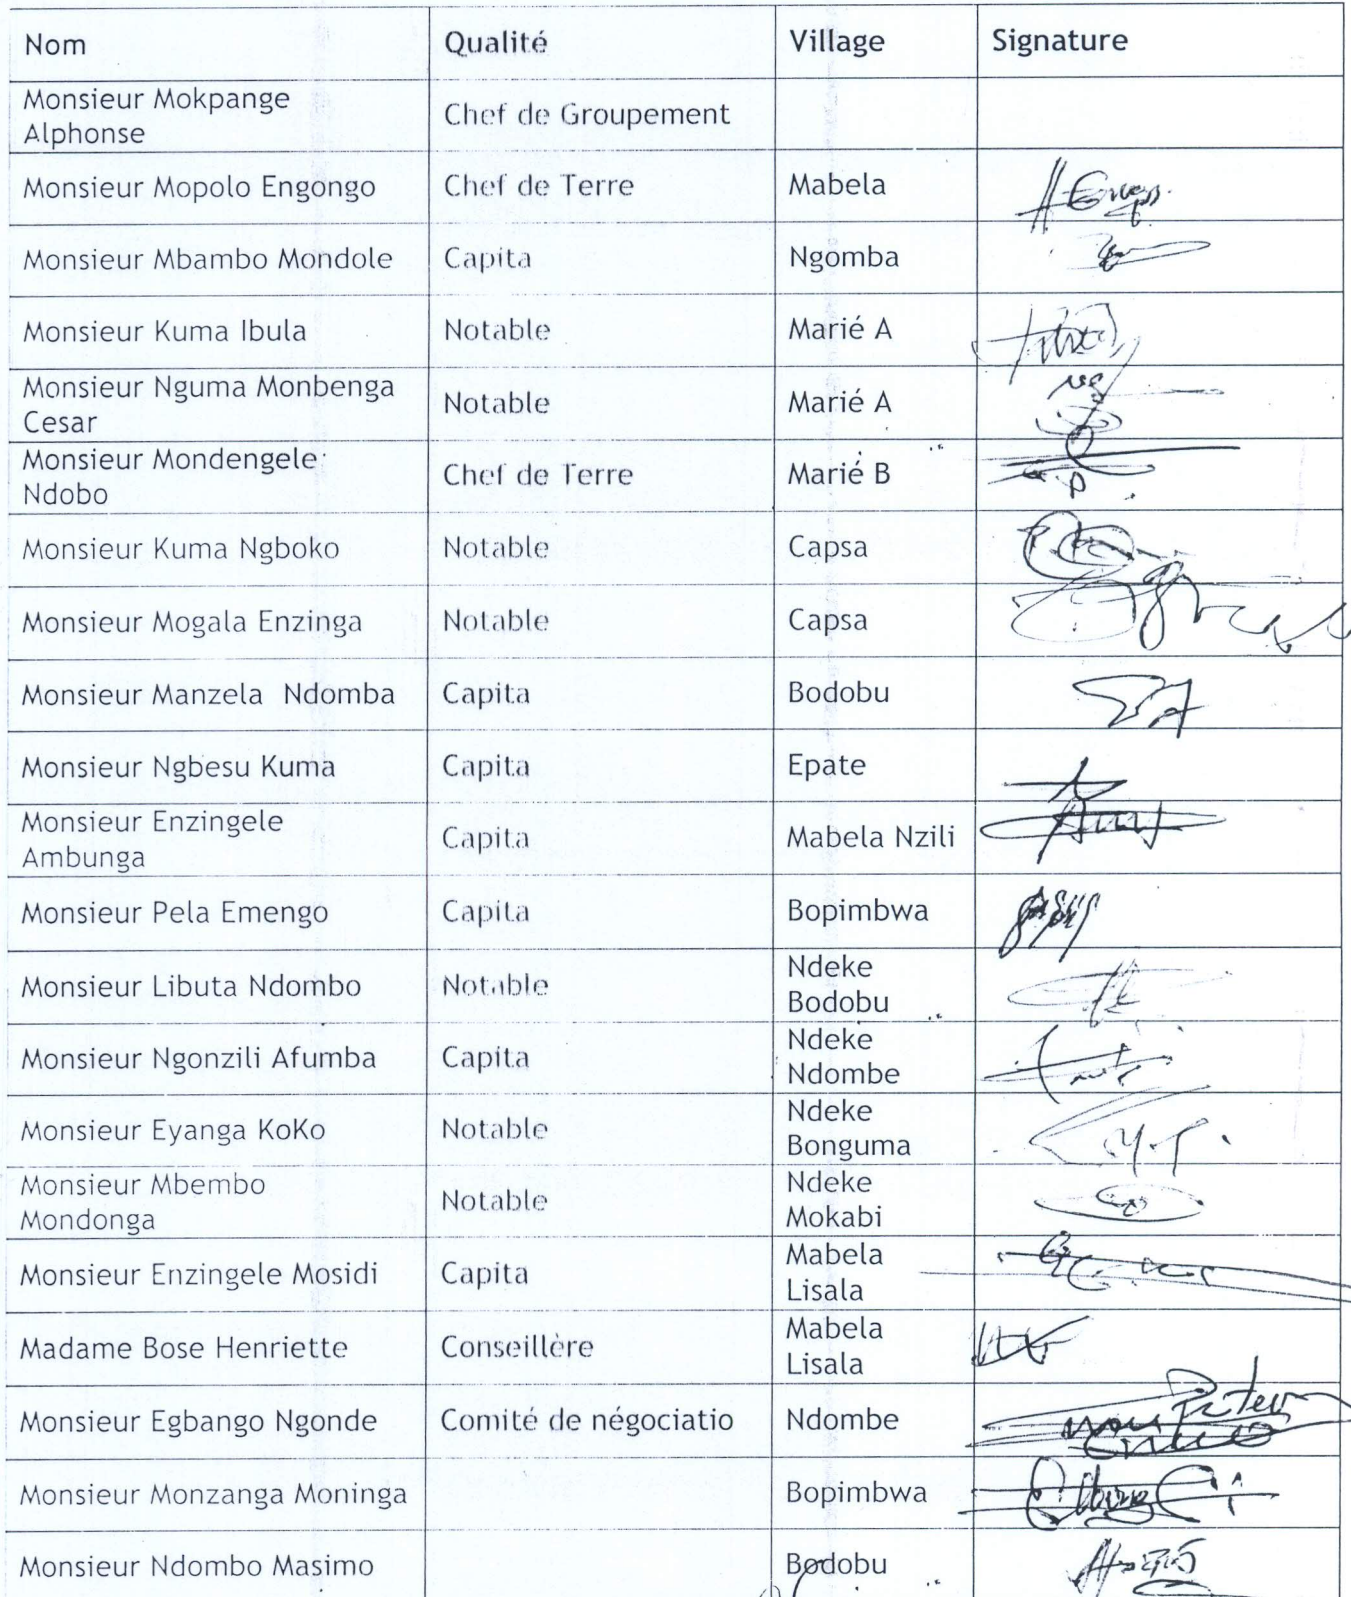 Nom Qualité Village Signature
Monsieur Mokpange
Alphonse
Chef de Groupement
Monsieur Mopolo Engongo Chef de Terre Mabela
Monsieur Mbambo Mondole Capita Ngomba
Monsieur Kuma Ibula Notable Marié A
Monsieur Nguma Monbenga
Cesar
Notable Marié A
Monsieur Mondengele
Ndobo
Chef de Terre Marié B
Monsieur Kuma Ngboko Notable Capsa
Monsieur Mogala Enzinga Notable Capsa
Monsieur Manzela Ndomba Capita Bodobu
Monsieur Ngbesu Kuma Capita Epate
Monsieur Enzingele
Ambunga
Capita Mabela Nzili
Monsieur Pela Emengo Capita Bopimbwa
Monsieur Libuta Ndombo Notable
Ndeke
Bodobu
Monsieur Ngonzili Afumba Capita
Ndeke
Ndombe
Monsieur Eyanga KoKo Notable
Ndeke
Bonguma
Monsieur Mbembo
Mondonga
Notable
Ndeke
Mokabi
Monsieur Enzingele Mosidi Capita
Mabela
Lisala
Madame Bose Henriette Conseillère
Mabela
Lisala
Monsieur Egbango Ngonde Comité de négociatio Ndombe
Monsieur Monzanga Moninga Bopimbwa
Monsieur Ndombo Masimo Bodobu